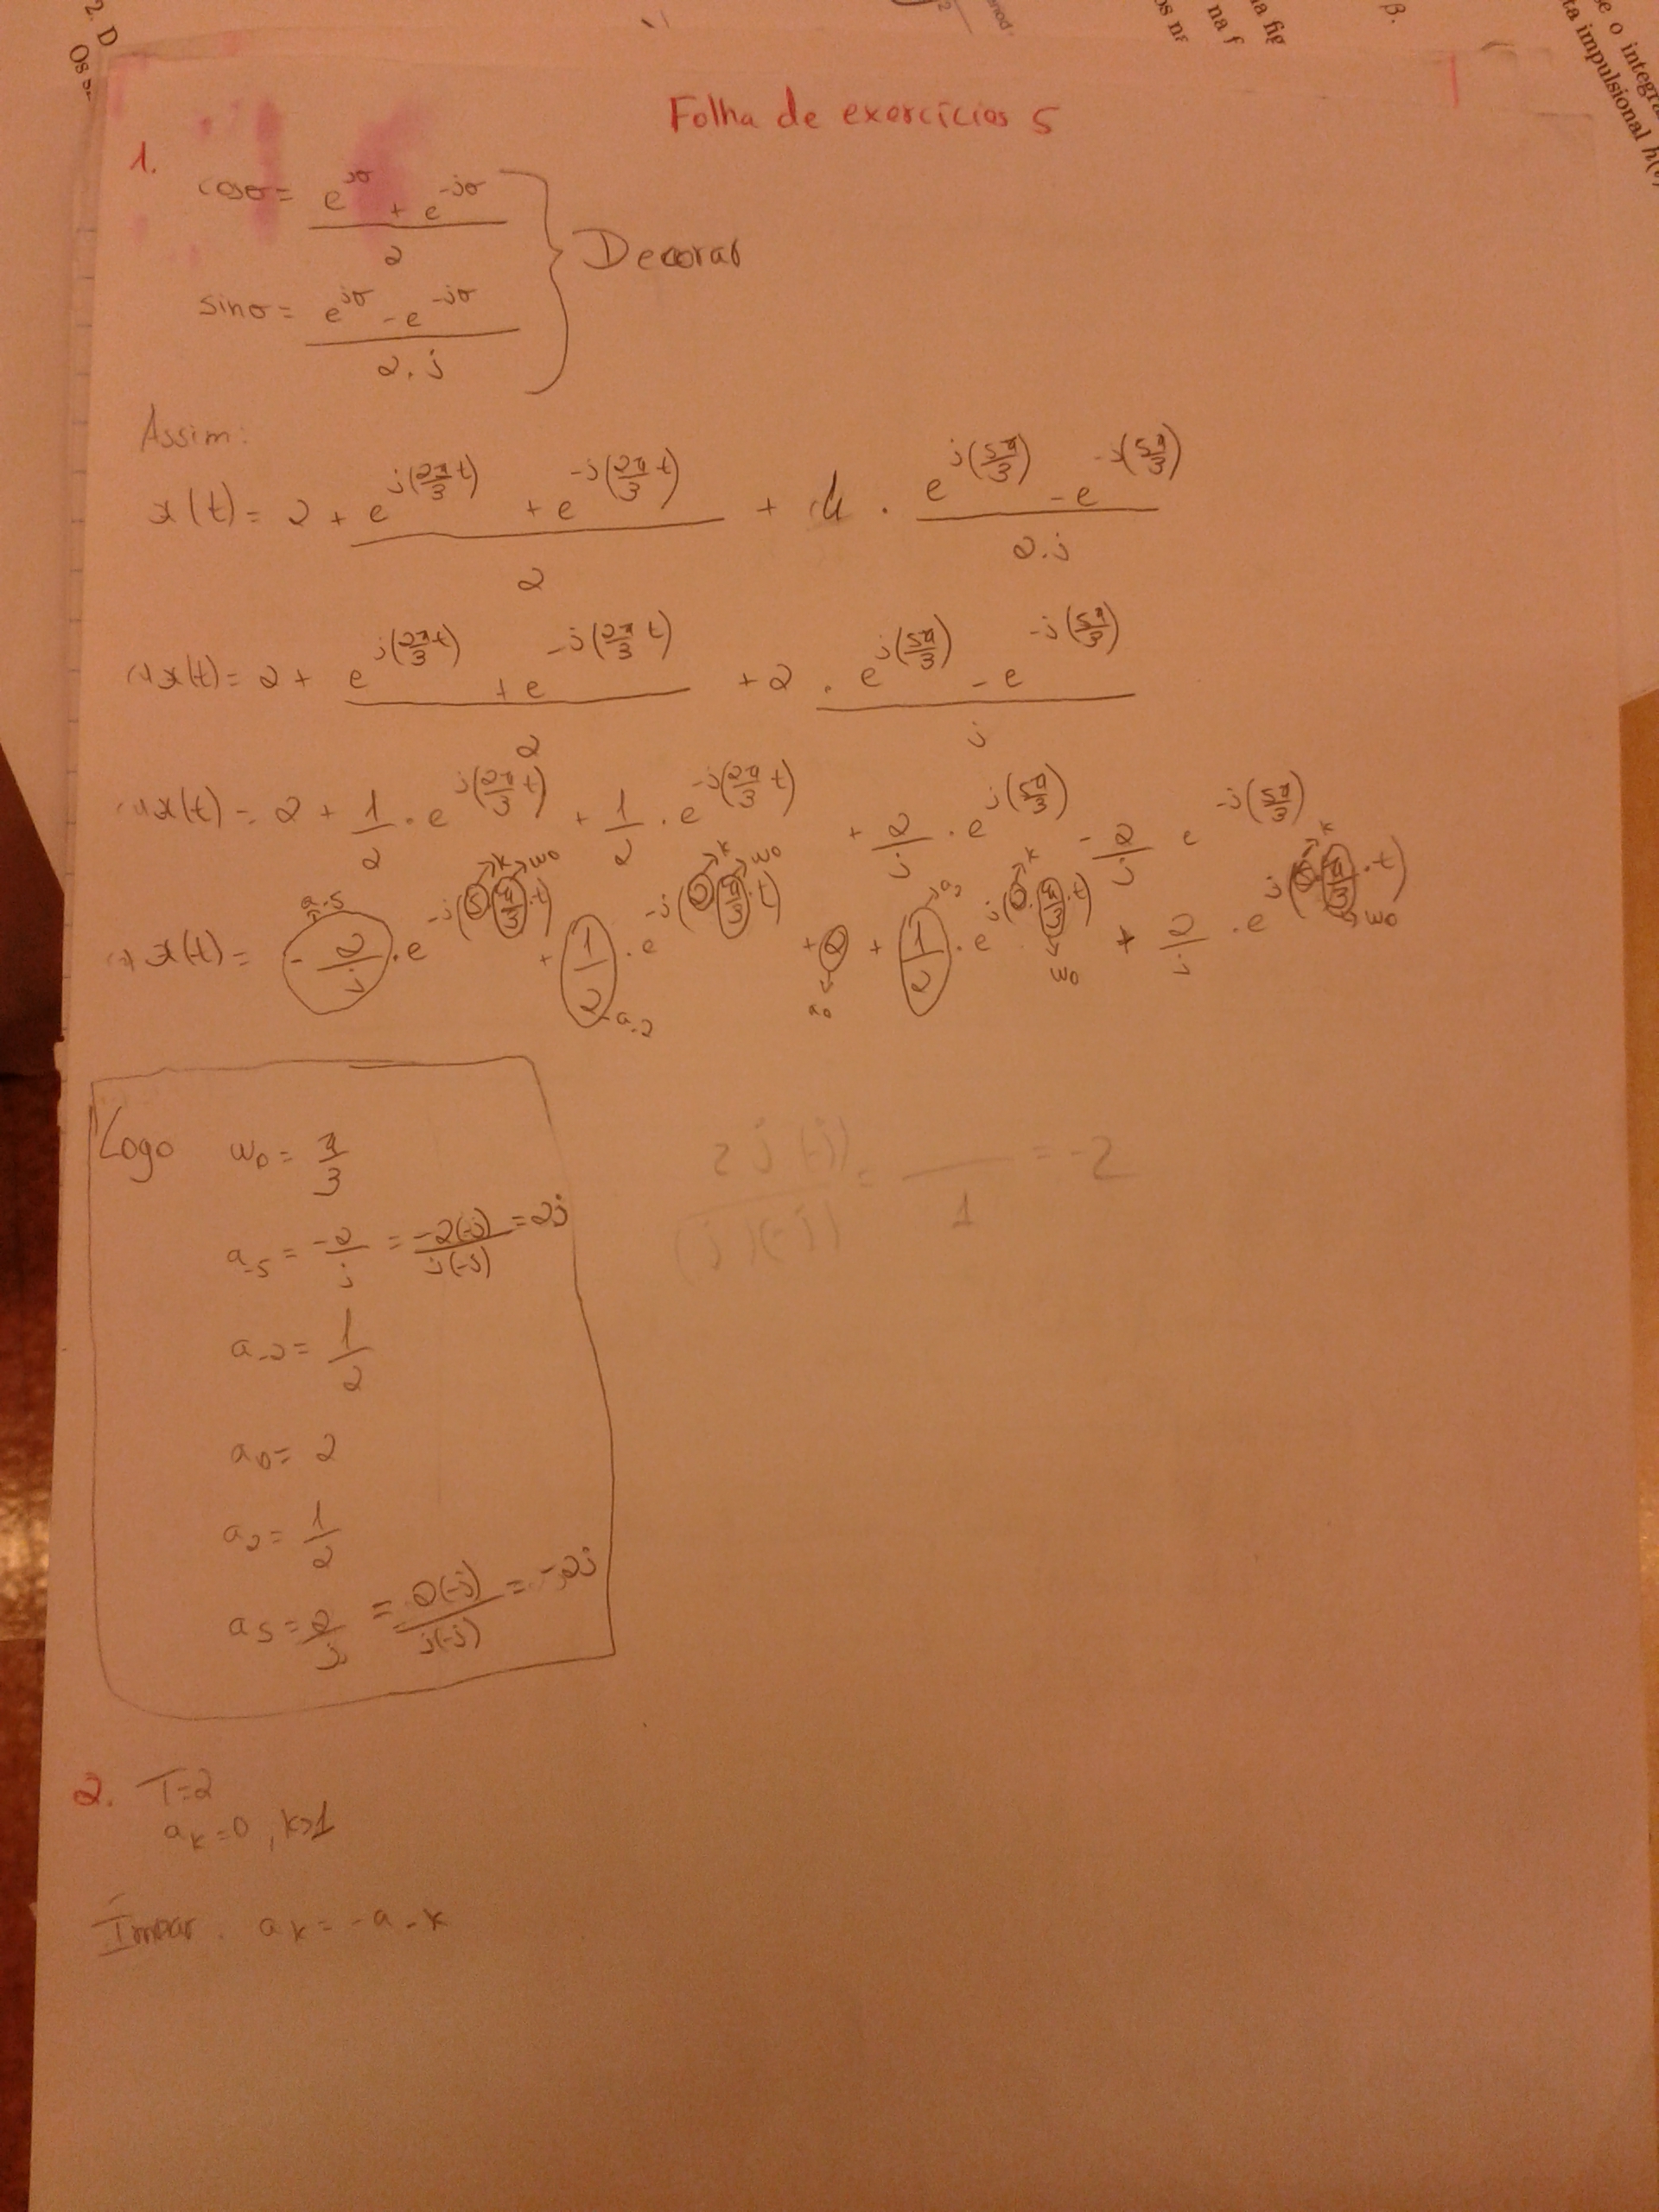 2. D
Os
nod.
os n
na f
a fig
β.
se o integra
ta impulsional h(t)
Folha de exercícios 5
1.
cosσ = (e^{jσ} + e^{-jσ})/2
sinσ = (e^{jσ} - e^{-jσ})/(2.j)
} Decorar
Assim:
x(t) = 2 + (e^{j(2π/3 t)} + e^{-j(2π/3 t)})/2 + 4 . (e^{j(5π/3)} - e^{-j(5π/3)})/(2.j)
(⇒) x(t) = 2 + (e^{j(2π/3 t)} + e^{-j(2π/3 t)})/2 + 2 . (e^{j(5π/3)} - e^{-j(5π/3)})/j
(⇒) x(t) = 2 + 1/2 . e^{j(2π/3 t)} + 1/2 . e^{-j(2π/3 t)} + 2/j . e^{j(5π/3)} - 2/j e^{-j(5π/3)}
a-5 k w0 k w0 a2 k k
(⇒) x(t) = - 2/j . e^{-j(5 π/3 .t)} + 1/2 . e^{-j(2 π/3 .t)} + 2 + 1/2 . e^{j(2 π/3 .t)} + 2/j . e^{j(5. π/3 .t)}
a-2 a0 w0 w0
Logo w0 = π/3
a-5 = -2/j = -2(-j)/j(-j) = 2j
a-2 = 1/2
a0 = 2
a2 = 1/2
a5 = 2/j = 2(-j)/j(-j) = -2j
2j(-j)/(j)(-j) = /1 = -2
2. T=2
ak = 0 , k>1
Ímpar. ak = -a-k